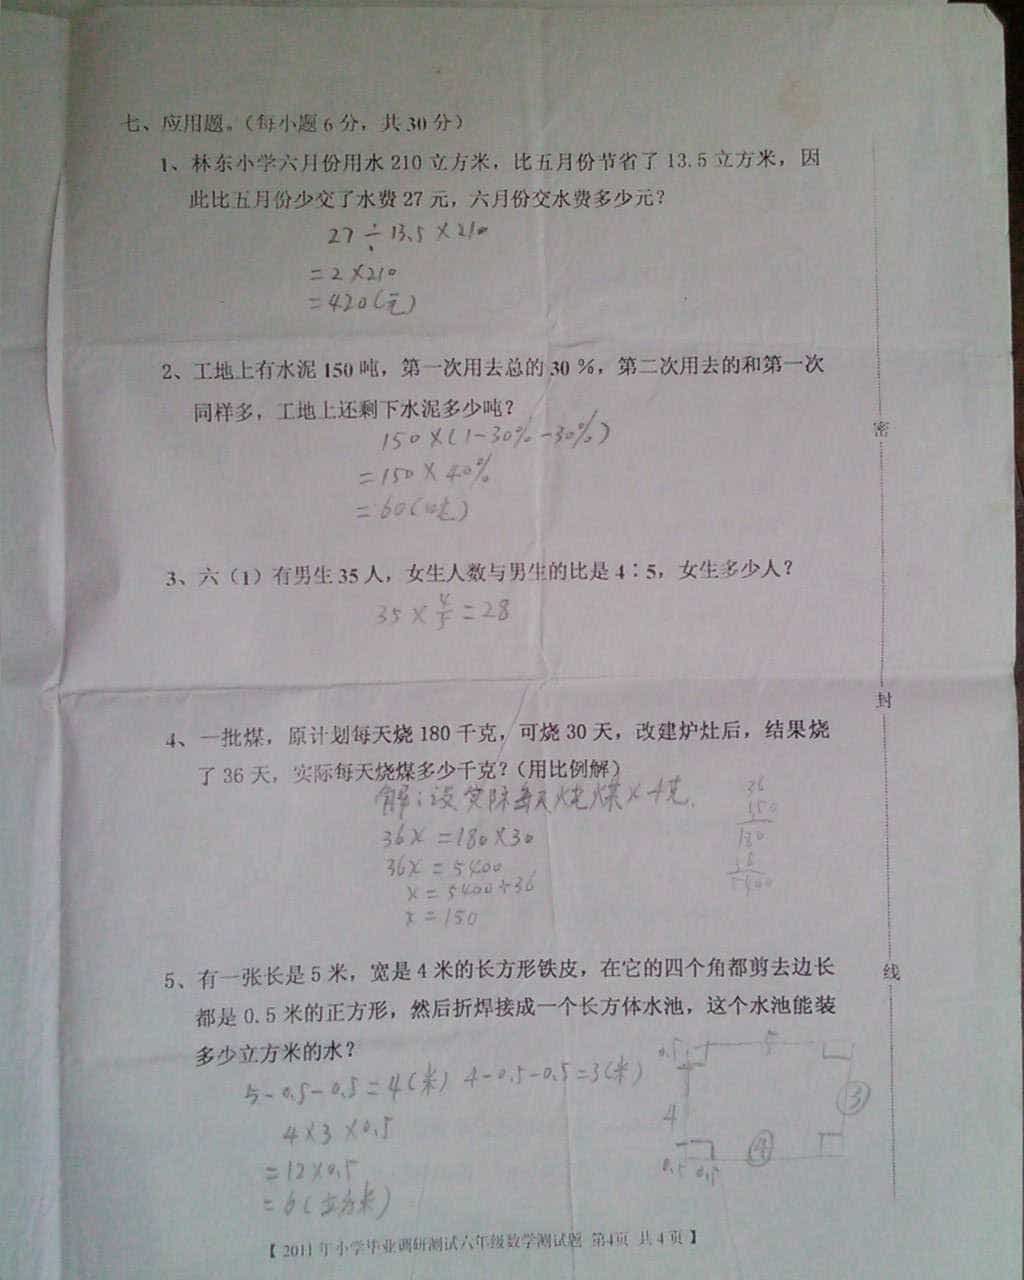 七、应用题。（每小题6分，共30分）
1、林东小学六月份用水210立方米，比五月份节省了13.5立方米，因
此比五月份少交了水费27元，六月份交水费多少元？
27÷13.5×210
=2×210
=420(元)
2、工地上有水泥150吨，第一次用去总的30％，第二次用去的和第一次
同样多，工地上还剩下水泥多少吨？
150×(1-30%-30%)
=150×40%
=60(吨)
3、六（1）有男生35人，女生人数与男生的比是4∶5，女生多少人？
35×4/5=28
4、一批煤，原计划每天烧180千克，可烧30天，改建炉灶后，结果烧
了36天，实际每天烧煤多少千克？（用比例解）
解：设实际每天烧煤x千克.
36x=180×30
36x=5400
x=5400÷36
x=150
36
150
180
36
5400
5、有一张长是5米，宽是4米的长方形铁皮，在它的四个角都剪去边长
都是0.5米的正方形，然后折焊接成一个长方体水池，这个水池能装
多少立方米的水？
5-0.5-0.5=4(米) 4-0.5-0.5=3(米)
4×3×0.5
=12×0.5
=6(立方米)
0.5
5
4
③
④
0.5 0.5
密
封
线
【2011年小学毕业调研测试六年级数学测试题 第4页 共4页】